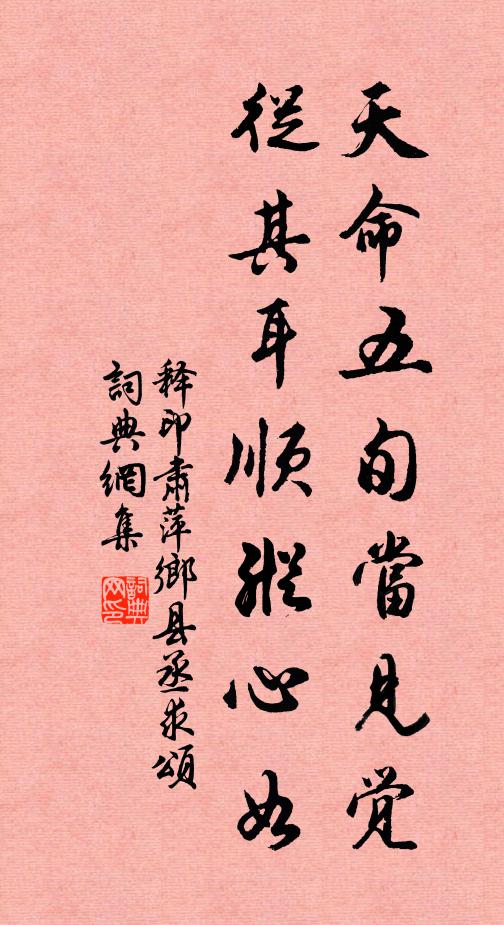 天命五旬當見觉
從其耳順縱心如
释印肃萍鄉县丞求頌
詞典網集
詞典网印